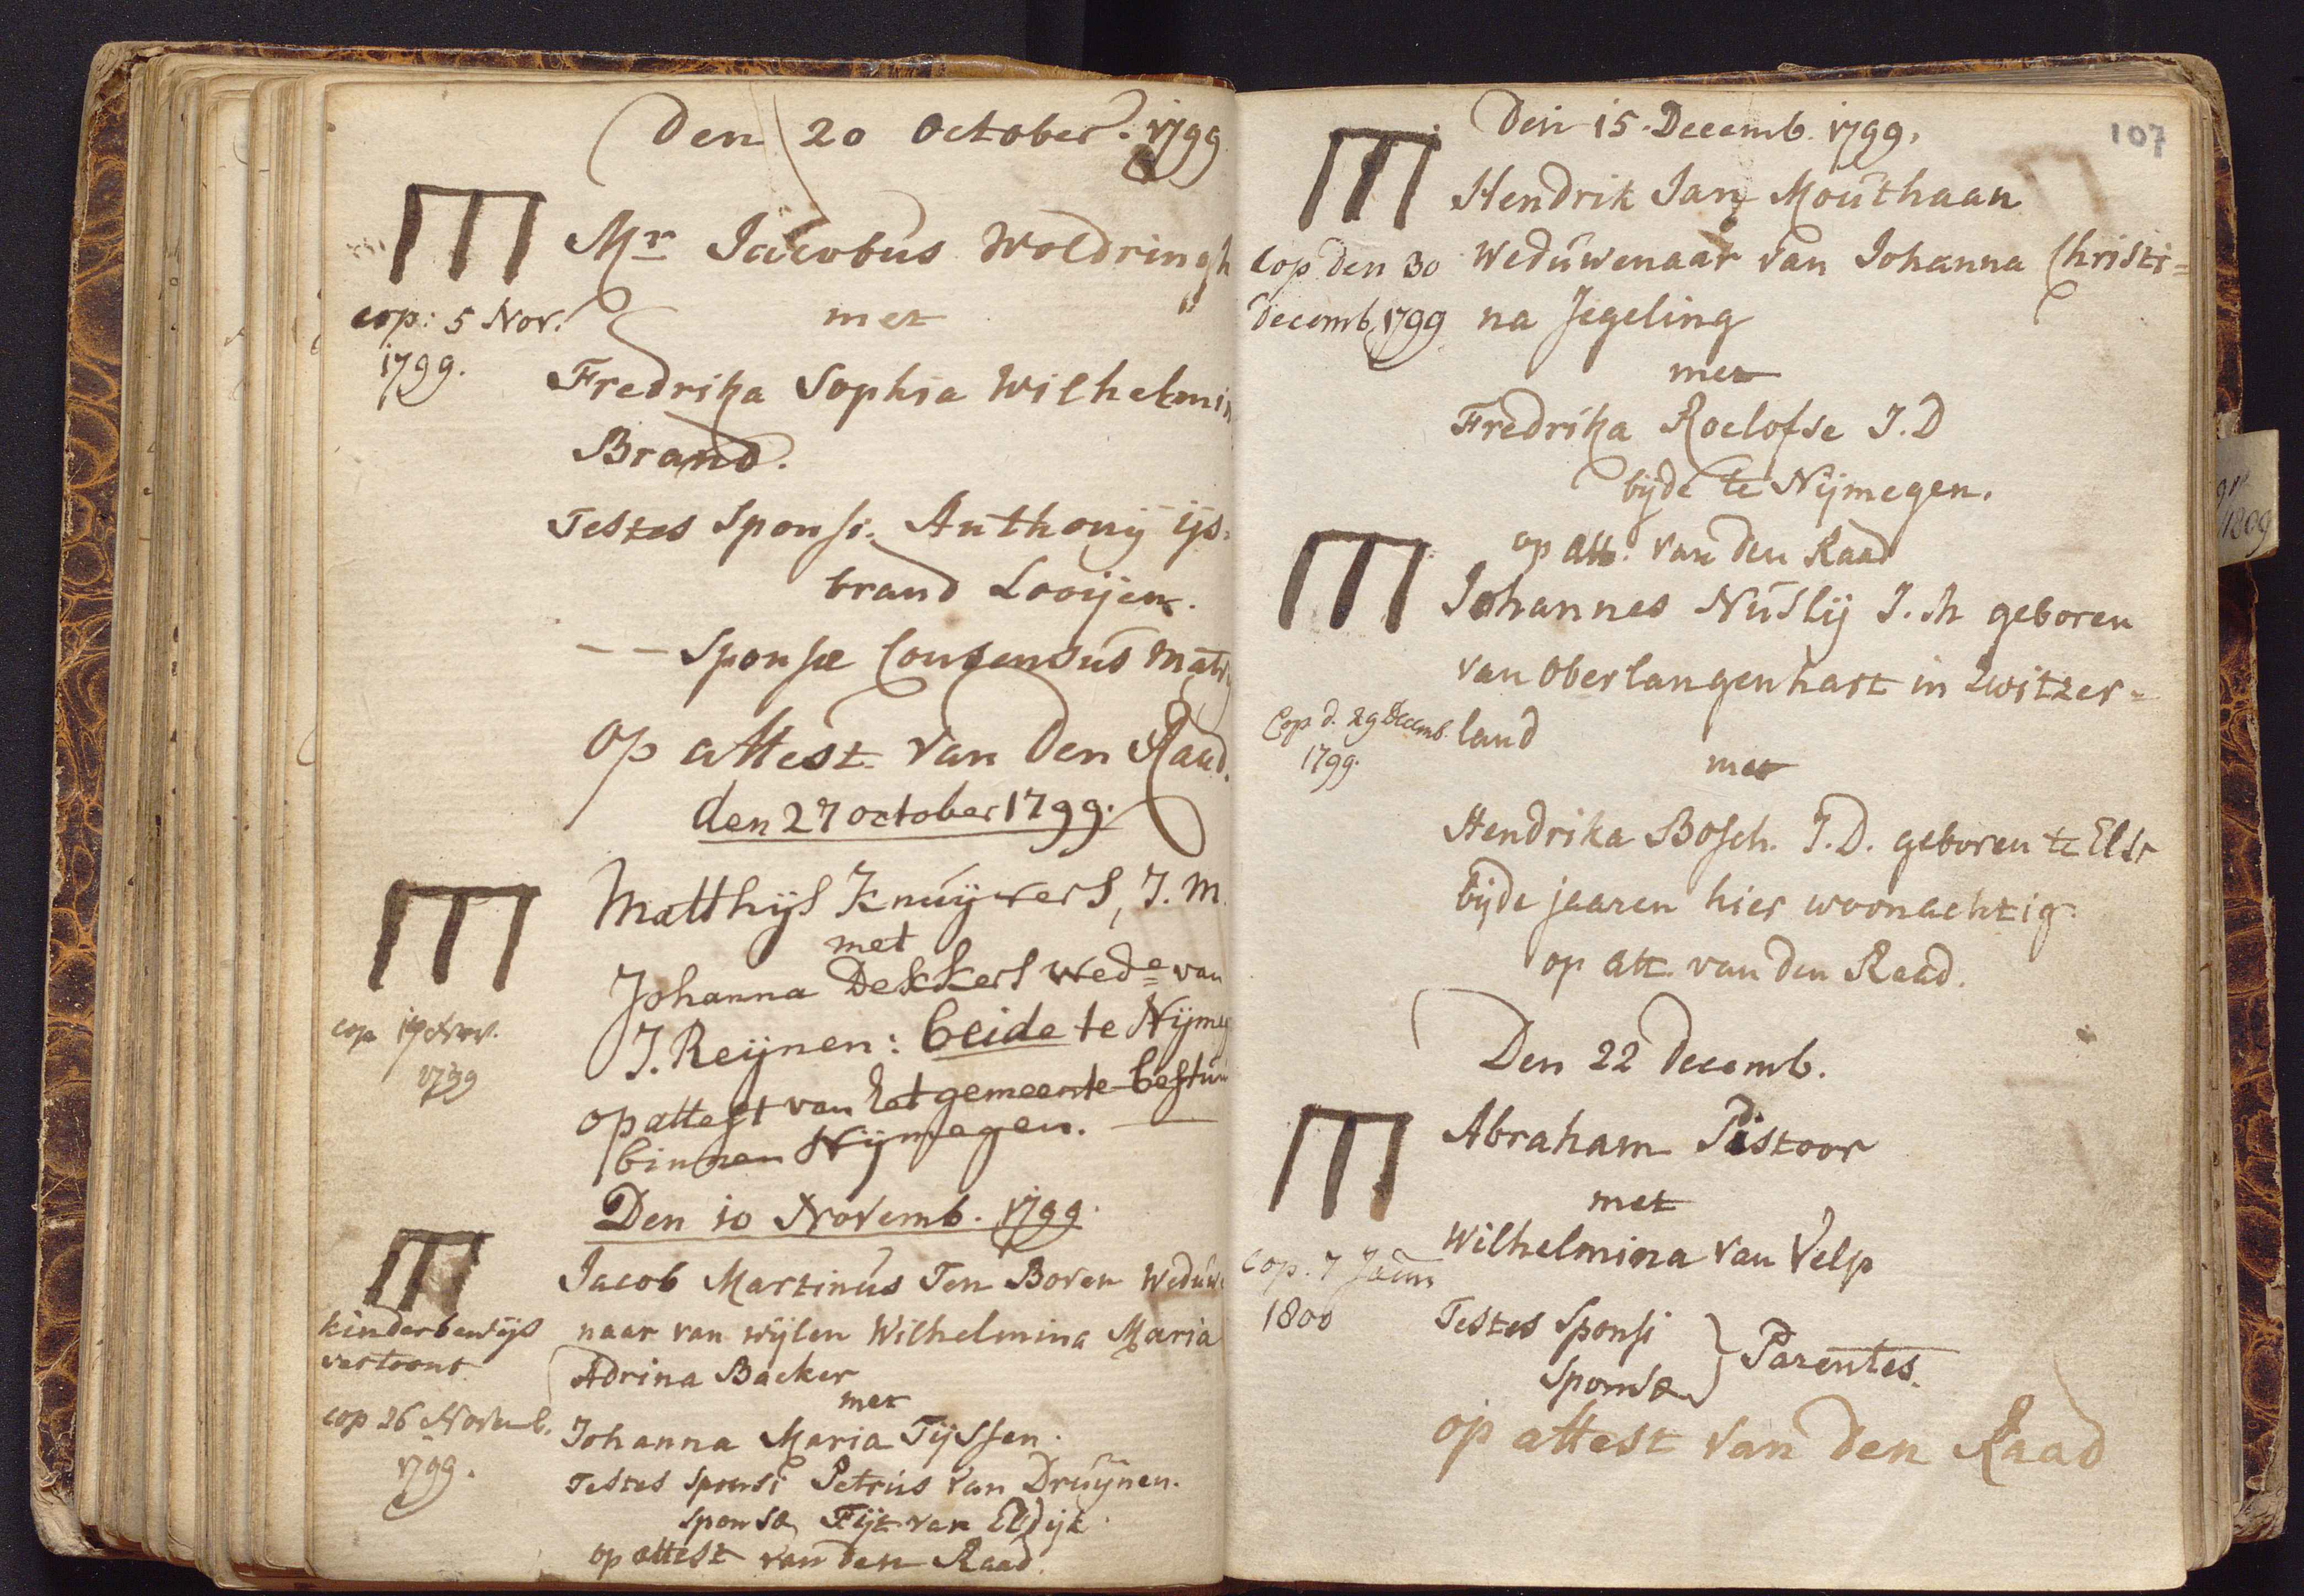 Den 20 October. 1799
Mr Jacobus Woldringh
cop: 5 Nov.
1799.
met
Fredrika Sophia Wilhelmin
Brand.
Testes Sponsi. Anthonij ijs=
brand Looijen.
-- Sponsæ Consensus Matris
op attest van den Raad.
den 27 october 1799.
Matthijs Knuijvers, J.M.
met
Johanna Dekkers wede van
J. Reijnen: beide te Nijmeg
cop 19 Nov.
1799
op attest van het gemeente-bestuu
binnen Nijmegen.
Den 10 Novemb. 1799.
Jacob Martinus Ten Boven Weduwe
kinderbewijs
vertoont
naar van wijlen Wilhelmina Maria
Adrina Backer
met
cop 26 Novemb.
1799.
Johanna Maria Tijssen.
Testes Sponsi Petrus van Druijnen.
Sponsæ Fijt van Eldijk
op attest van den Raad.
107
Den 15. Decemb. 1799.
Hendrik Jan Mouthaan
Cop den 30
decemb 1799
Weduwenaar van Johanna Christi=
na Jegeling
met
Fredrika Roelofse J.D
bijde te Nijmegen.
op att: van den Raad
Johannes Nusly J.M geboren
van Oberlangenhart in Zwitzer=
Cop d. 29 Decemb.
1799.
land
met
Hendrika Bosch. J.D. geboren te Elst
bijde jaaren hier woonachtig.
op att. van den Raad.
Den 22 decemb.
Abraham Pistoor
met
Wilhelmina van Velp
cop. 7 Jann
1800
Testes Sponsi
Sponsæ } Parentes.
op attest van den Raad
1809